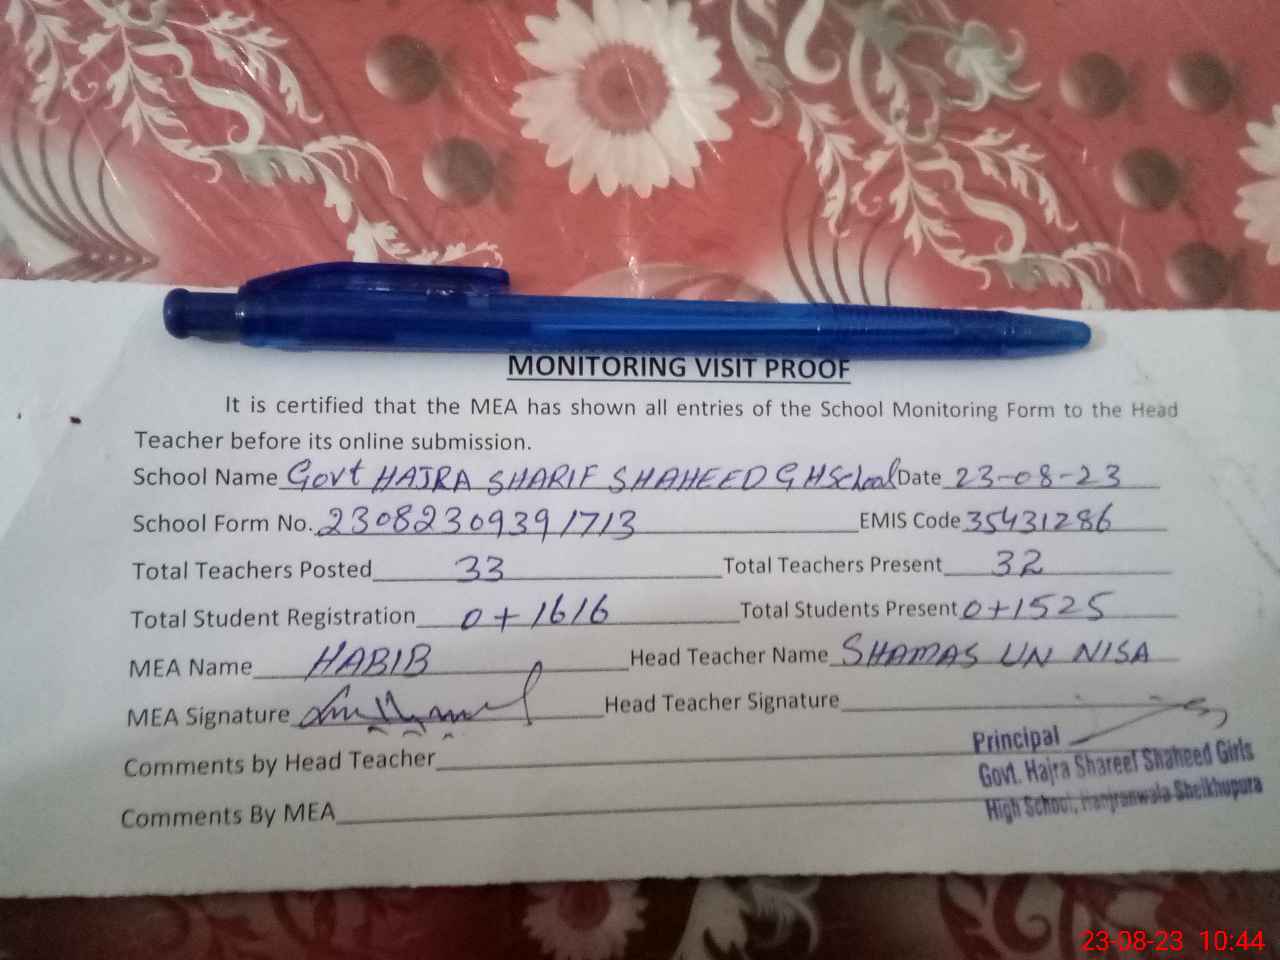 MONITORING VISIT PROOF
It is certified that the MEA has shown all entries of the School Monitoring Form to the Head
Teacher before its online submission.
School Name Govt HAJRA SHARIF SHAHEED G H School Date 23-08-23
School Form No. 23082309391713 EMIS Code 35431286
Total Teachers Posted 33 Total Teachers Present 32
Total Student Registration 0+1616 Total Students Present 0+1525
MEA Name HABIB Head Teacher Name SHAMAS UN NISA
MEA Signature Head Teacher Signature
Comments by Head Teacher
Comments By MEA
Principal
Govt. Hajra Shareef Shaheed Girls
High School, Hanjranwala Sheikhupura
23-08-23 10:44